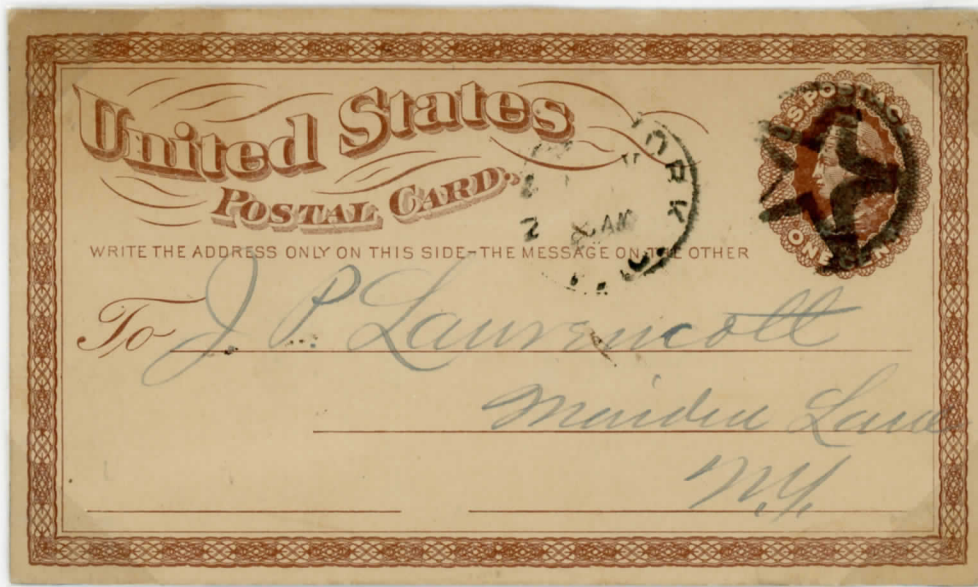 United States
POSTAL CARD.
WRITE THE ADDRESS ONLY ON THIS SIDE-THE MESSAGE ON THE OTHER
U.S. POSTAGE
ONE CENT
ORK
AM
To J. P. Laurencott
Maiden Lane
N.Y.